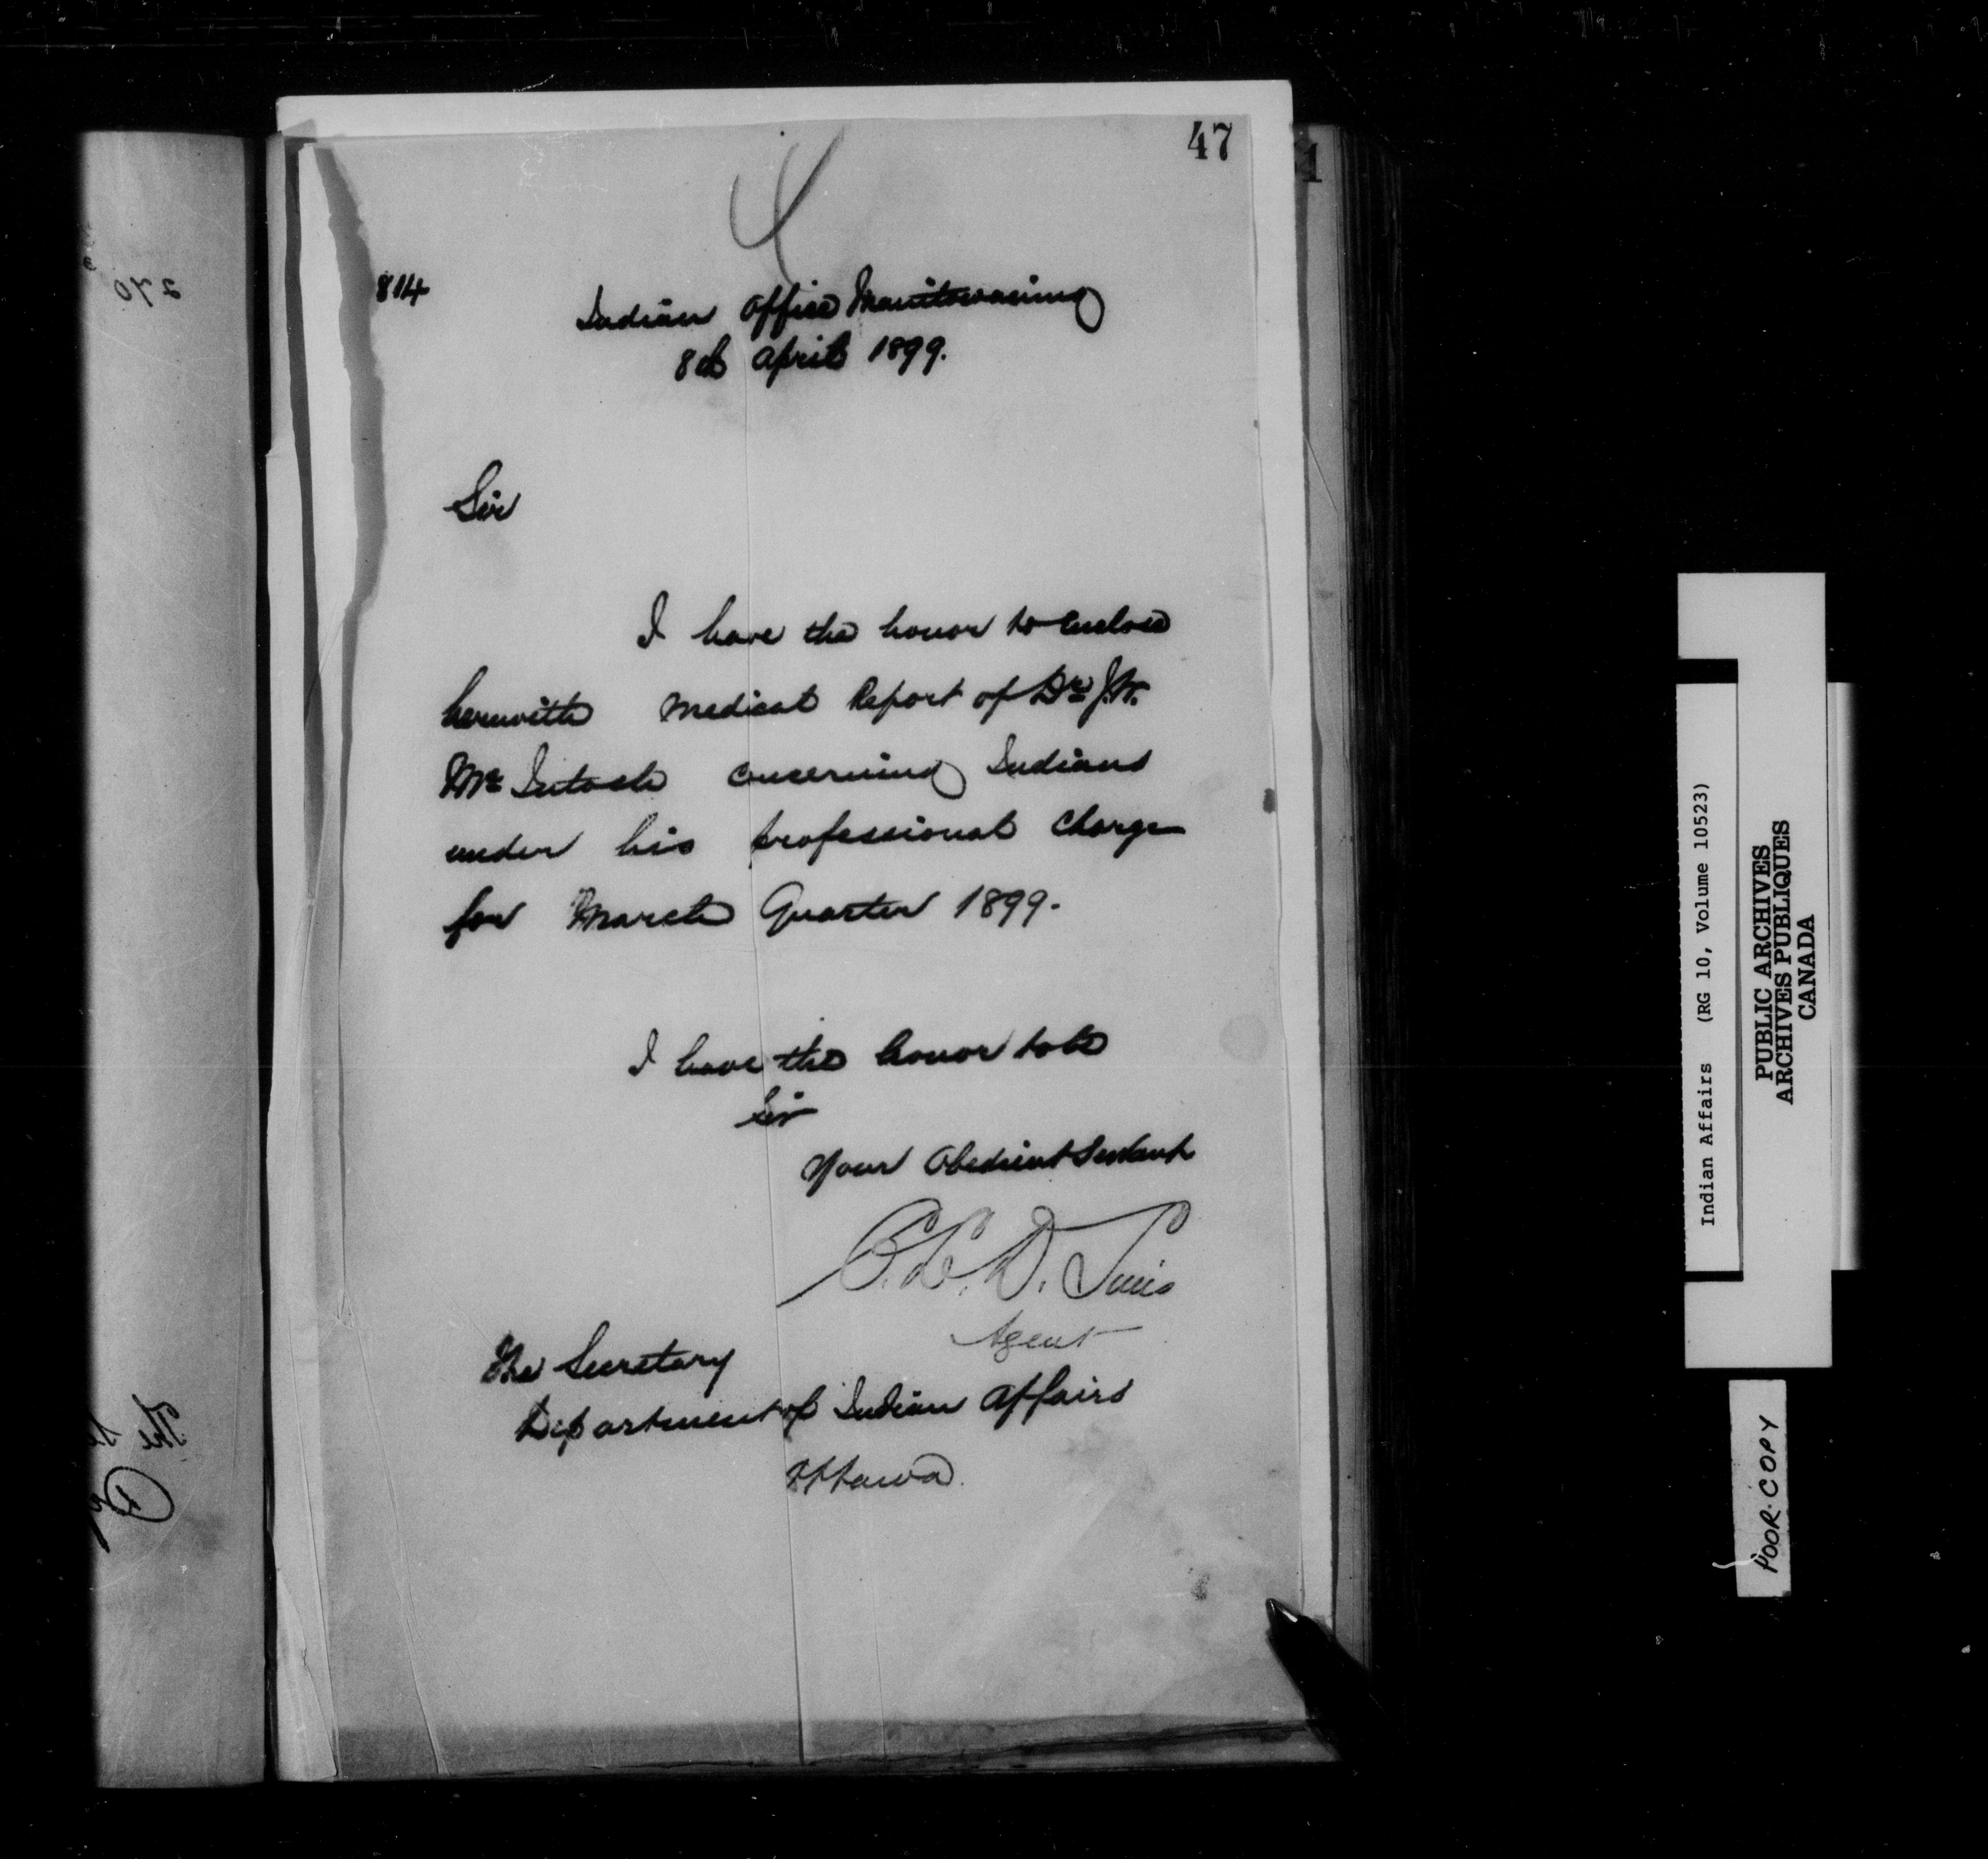 47
814
Indian Office Manitowaning
8th April 1899.
Sir
I have the honor to enclose
herewith Medical Report of Dr J.W.
McIntosh concerning Indians
under his professional charge
for March Quarter 1899.
I have the honor to be
Sir
Your Obedient Servant
B. W.
Agent
The Secretary
Department of Indian Affairs
Ottawa.
270
The
Indian Affairs (RG 10, Volume 10523)
PUBLIC ARCHIVES
ARCHIVES PUBLIQUES
CANADA
POOR COPY